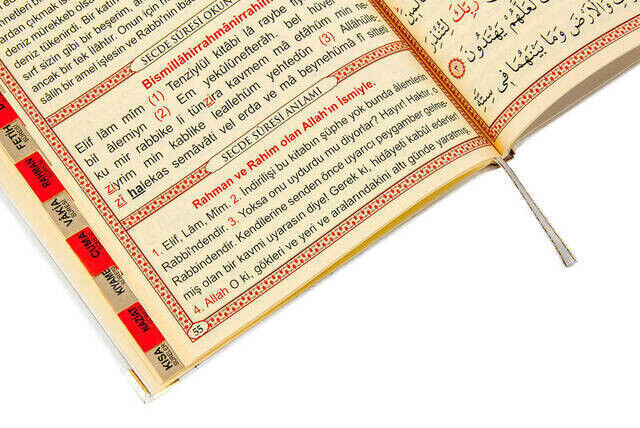 deniz mürekkep olsa
deniz tükenirdi. Bir katın
sırf sizin gibi bir beşerim, an
ancak bir tek ilâhtır. Onun için h
sâlih bir amel işlesin ve Rabbinin ibad
SECDE SÛRESİ OKUN
Bismillâhirrahmânirrahîm
Elif lâm mîm (1) Tenzîylül kitâbi lâ raybe
bil âlemiyn (2) Em yekûlûnefterâh. bel hüvel
ku mir rabbike li tünzira kavmem mâ etâhüm min ne
ziyrim min kablike leallehüm yehtedûn (3) Allâhülle
zî halekas semâvâti vel erda ve mâ beynehümâ fî sitteti
SECDE SÛRESİ ANLAMI
Rahman ve Rahim olan Allah'ın ismiyle.
1. Elif, Lâm, Mîm. 2. İndirilişi bu kitabın şüphe yok bunda âlemlerin
Rabbi'ndendir. 3. Yoksa onu uydurdu mu diyorlar? Hayır! Haktır, o
Rabbindendir. Kendilerine senden önce uyarıcı peygamber gelme-
miş olan bir kavmi uyarasın diye! Gerek ki, hidâyeti kabûl ederler!
4. Allah O ki, gökleri ve yeri ve aralarındakini altı günde yaratmış,
55
رَبِّكَ لِتُنْذِرَ
لَعَلَّهُمْ يَهْتَدُونَ
وَالْاَرْضَ وَمَا بَيْنَهُمَا فِي سِتَّةِ
FETİH
SÛRESİ
RAHMAN
VAKIA
SÛRESİ
CUMA
KIYAME
SÛRESİ
NAZİAT
KISA
SÛRELER